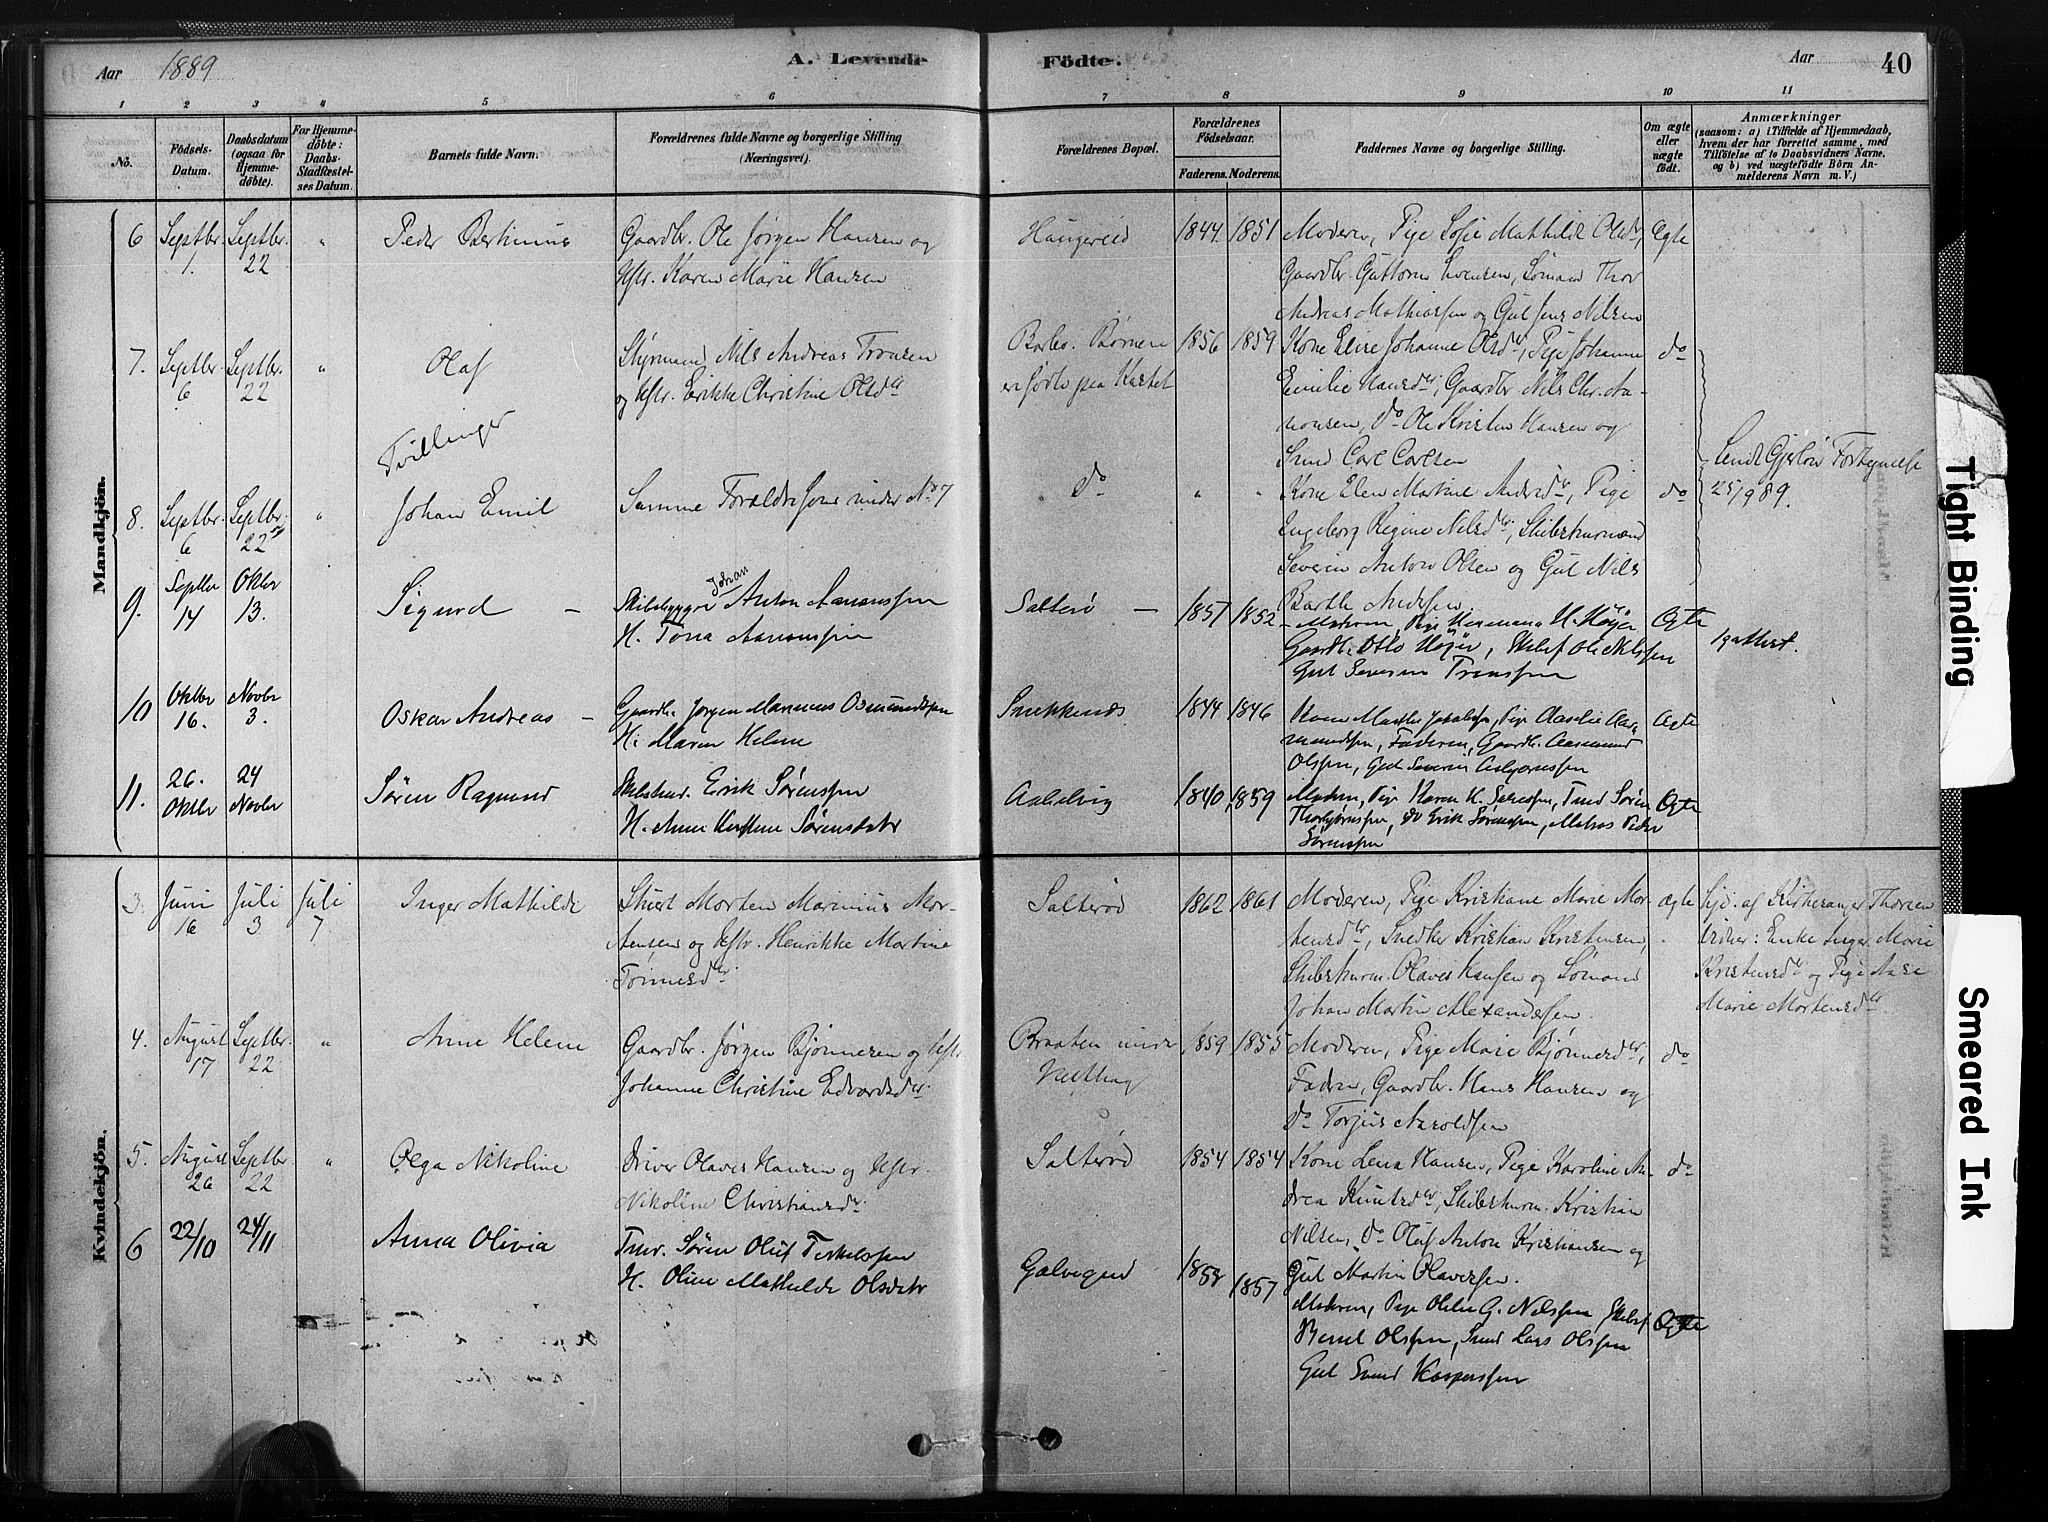 Aar 1889
A. Levende
Födte.
Aar
40
1 2 3 4 5 6 7 8 9 10 11
No.
Födsels-
Datum.
Daabsdatum
(ogsaa for
Hjemme-
döbte).
For Hjemme-
döbte:
Daabs-
Stadfæstel-
ses Datum.
Barnets fulde Navn.
Forældrenes fulde Navne og borgerlige Stilling
(Næringsvei).
Forældrenes Bopæl.
Forældrenes
Födselsaar.
Faderens. Moderens.
Faddernes Navne og borgerlige Stilling.
Om ægte
eller
uægte
födt.
Anmærkninger
(saasom: a) i Tilfælde af Hjemmedaab,
hvem der har forrettet samme, med
Tilföielse af to Daabsvidners Navne,
og b) ved uægtefödte Börn An-
melderens Navn m. V.)
Mandkjön.
6 Septbr. 1. Septbr. 22 " Peder Bertinius
Gaardbr. Ole Jørgen Hansen og
Hstr. Karen Marie Hansen
1844. 1851
Moderen, Pige Sofie Mathilde Olsdr, Ægte
Gaardbr. Guttorm Svensen, Sømand Thor
Andreas Mathiassen og Gut Jens Nilsen
7. Septbr. 6 Septbr. 22 " Olaf
Styrmand Nils Andreas Tronsen
og Hstr. Erikke Christine Olsdr
Barbo. Børnene
ere fødte paa
1856 1859
Kone Elise Johanne Olsdr, Pige Johanne do
Emilie Hansdr, Gaardbr Nils Chr. Aa-
nonsen, do Ole Kristen Hansen og
Smed Carl Carlsen
Tvillinger
8. Septbr. 6 Septbr. 22 " Johan Emil
Samme Forældre som under No 7
do " "
Kone Elen Martine Andersdr, Pige do
Ingeborg Regine Nilsdr, Skibstømmand
Severin Anton Olsen og Gut Nils
Barth Andersen.
25/9 89.
9. Septbr 14 Oktbr 13. Sigurd —
Skibsbygger Johan Anton Aanonssen
H. Tona Aanonssen
Salterö — 1857 1852
Moderen, Pige Hermana H. Höjer Ægte
Gaardb. Otto Höjer, Ole Nilssen
Gut Severin Tronssen
10 Oktbr 16. Novbr 3. Oskar Andreas —
Gaardb. Jørgen Marenius Osmundssen
H. Maren Helene
Snekkenæs 1844 1846
Kone Marthe Jakobssen, Pige Aaselie Aas- Ægte
mundssen, Faderen, Gaardb. Aasmund
Olssen, Gut Severin Asbjørnssen
11. 26. Oktbr 24 Novbr Sören Ragnvald
Erik Sörenssen
H. Anne Kirstine Sörensdatr
1840 1859
Moderen, Pige Karen K. Sörenssen, Tmd Sören Ægte
Thorbjörnssen, do Erik Sörenssen, Matros Peder
Sörenssen
Kvindekjön.
3. Juni 16 Juli 3 Juli 7 Inger Mathilde
Stuert Morten Marinius Mor-
tensen og Hstr. Henrikke Martine
Tønnesdr.
Salterød 1862 1861
Moderen, Pige Kristiane Marie Mor- ægte
tensdr, Snedker Kristian Kristensen,
Skibstømm. Olaves Hansen og Sømand
Johan Martin Alexandersen.
Hjd. af Kirkesanger Thorsen
Vidner: Enke Inger Marie
Kristensdr og Pige Aase
Marie Mortensdr
4. August 17 Septbr. 22 " Anne Helene
Gaardbr. Jørgen Bjønnesen og Hstr
Johanne Christine Edvardsdr.
Braaten under
1859 1855
Moderen, Pige Marie Bjønnesdr, do
Faderen, Gaardbr. Hans Hansen og
do Torjus Aaroldsen
5. August 26 Septbr. 22 " Olga Nikoline
Driver Olaves Hansen og Hstr.
Nikoline Christiansdr.
Salterød 1854 1854
Kone Lena Hansen, Pige Karoline An- do
drea Knutsdr, Skibstømm. Kristian
Nilsen, do Olaf Anton Kristiansen og
Gut Martin Olavessen.
6 22/10 24/11 Anna Olivia
Tmr. Sören Oluf Terkelssen
H. Oline Mathilde Olsdatr
1858 1857
Moderen, Pige Oline G. Nilssen Ægte
Bernt Olssen, Smd Lars Olssen
Gut Svend Kasperssen
Tight Binding
Smeared Ink